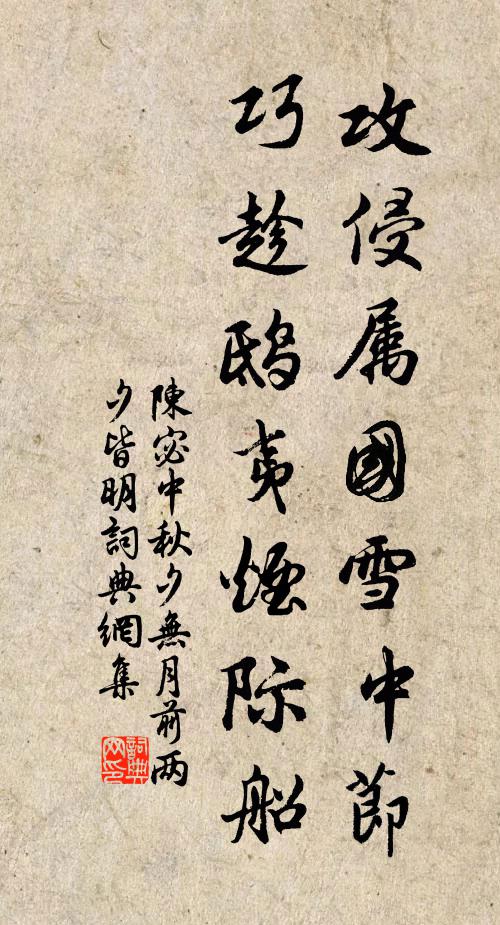 攻侵属國雪中節
巧趁鴟夷煙际船
陳宓中秋夕無月前两
夕皆明詞典網集
詞典
网印